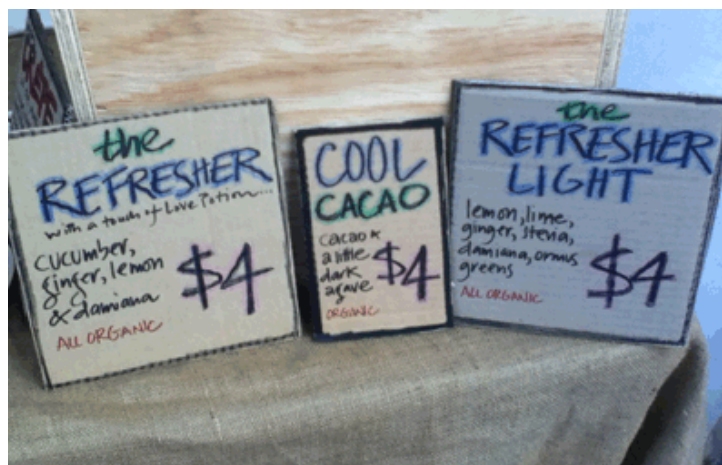 the
REFRESHER
with a touch of Love Potion...
cucumber,
ginger, lemon
& damiana
$4
ALL ORGANIC
COOL
CACAO
cacao &
a little
dark
agave
$4
ORGANIC
the
REFRESHER
LIGHT
lemon, lime,
ginger, stevia,
damiana, ormus
greens
$4
ALL ORGANIC